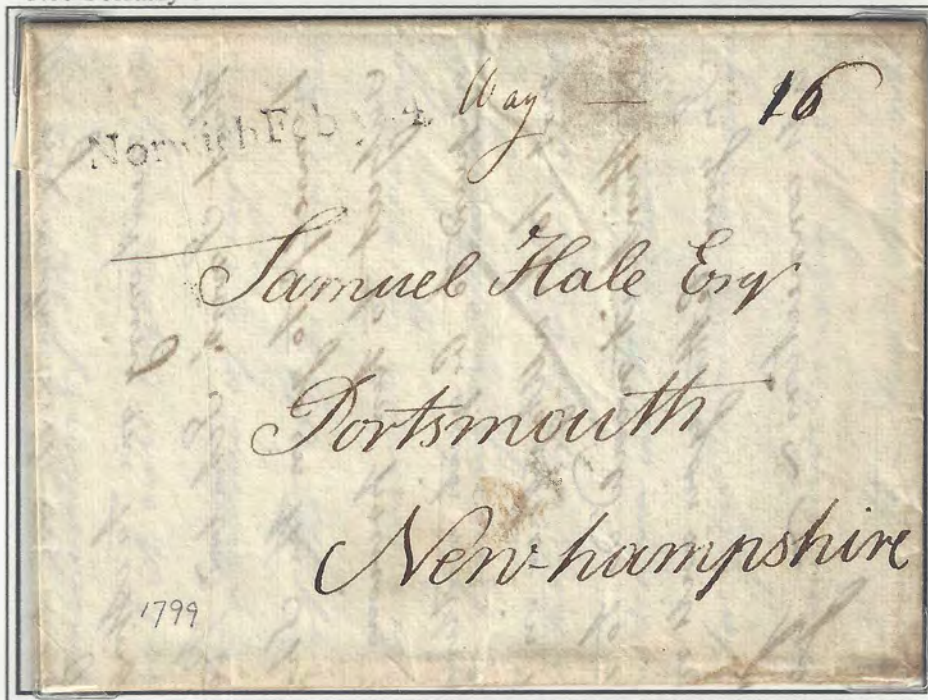 Norwich Feb Way 16
Samuel Hale Esqr
Portsmouth
New-hampshire
1799